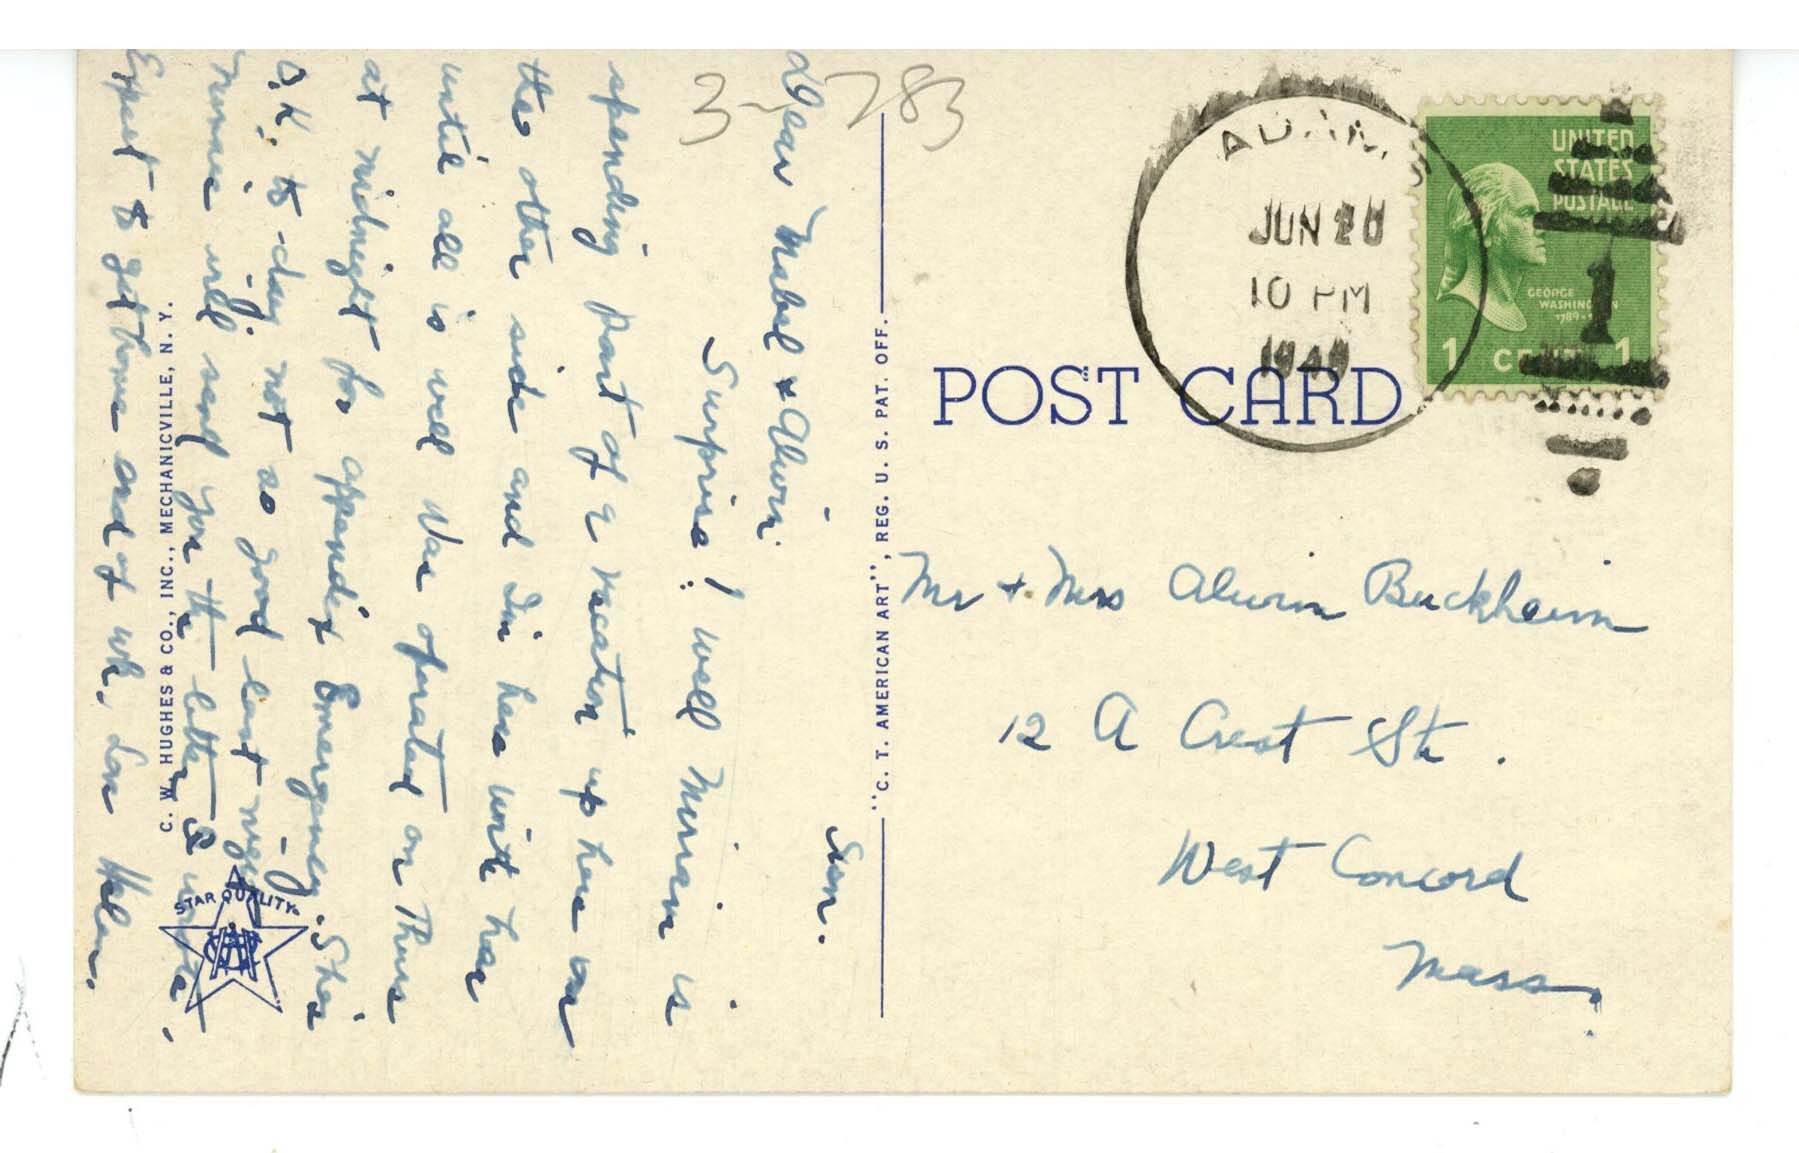 3-783
Sun.
Dear Mabel & Alwin
Surprise! Well Miriam is
spending part of a vacation up here on
the other side and I'm here with her
until all is well. Was operated on Thurs
at midnight for appendix Emergency. She's
O.K. to-day not as good last night
Minnie will send you the letter I write.
Expect to get home end of wk. Love Helen.
C. W. HUGHES & CO., INC., MECHANICVILLE, N. Y.
STAR QUALITY
"C. T. AMERICAN ART", REG. U. S. PAT. OFF.
POST CARD
ADAMS
JUN 20
10 PM
1949
UNITED
STATES
POSTAGE
GEORGE
WASHINGTON
1789-
1 CENT 1
1
Mr & Mrs Alwin Buckheim
12 A Crest Str.
West Concord
Mass.